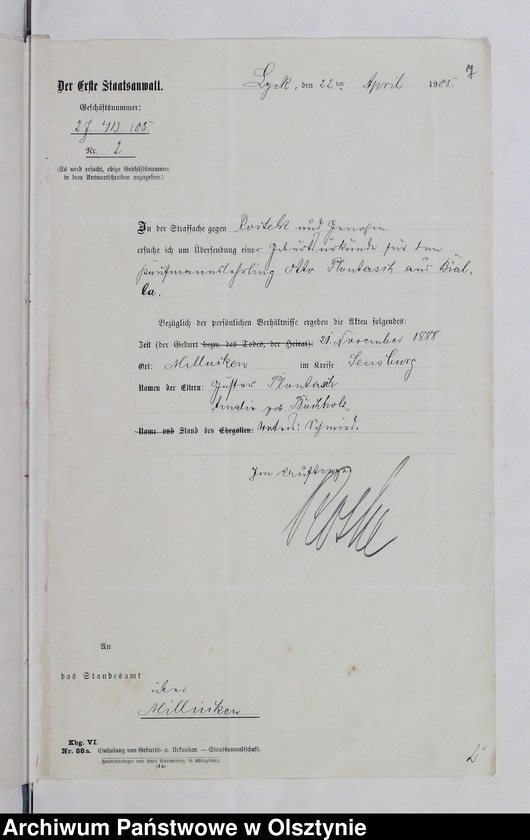 Der Erste Staatsanwalt.
Lyck, den 22 ten April 1905.
Geschäftsnummer:
2 J. 413/05
Nr. 2
(Es wird ersucht, obige Geschäftsnummer
in dem Antwortschreiben anzugeben.)
In der Strafsache gegen und Genossen
ersuche ich um Übersendung einer Geburtsurkunde für den
Kaufmannslehrling Otto Plontasch aus Bial-
la.
Bezüglich der persönlichen Verhältnisse ergeben die Akten folgendes:
Zeit (der Geburt bezw. des Todes, der Heirat): 21. November 1888
Ort: Millucken im Kreise Sensburg
Namen der Eltern: Gustav Plontasch
Amalie geb. Buchholz
Name und Stand des Ehegatten: Vaters: Schmied.
Im Auftrage
An
das Standesamt
über
Millucken
Kbg. VI.
Nr. 88a. Einholung von Geburts- u. Urkunden. — Staatsanwaltschaft.
Formularlager von Emil Rautenberg in Königsberg.
Archiwum Państwowe w Olsztynie